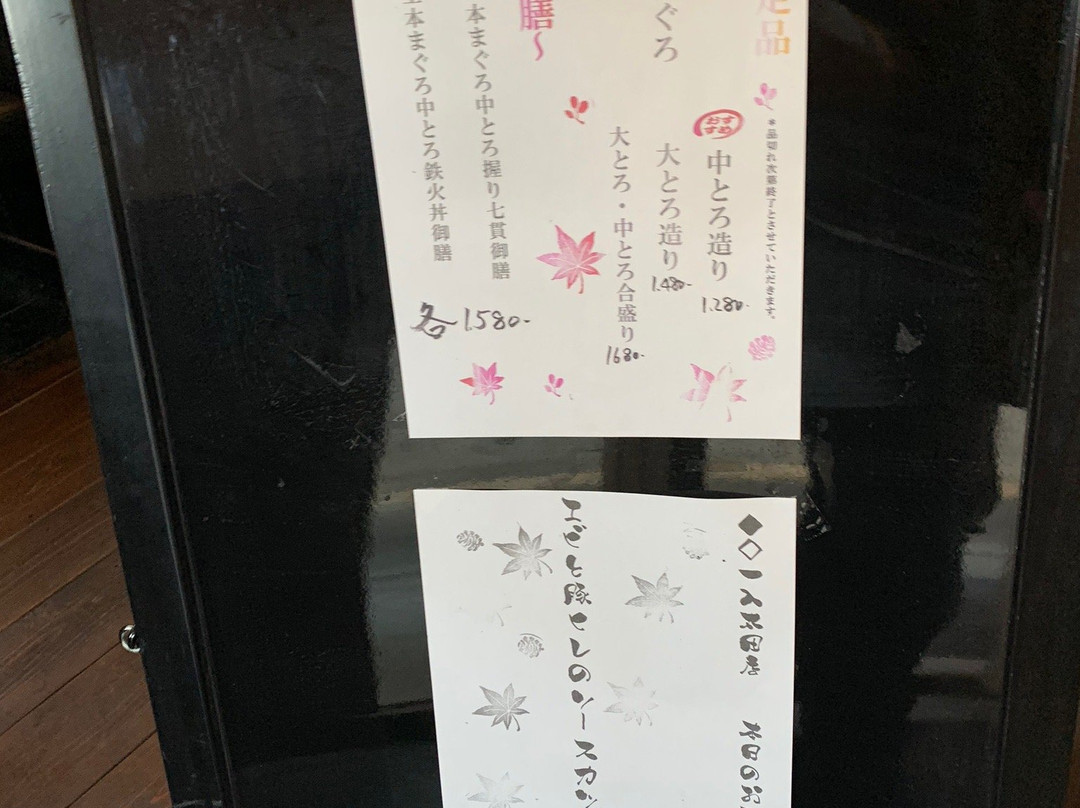 定品
*品切れ次第終了とさせていただきます。
おすすめ
中とろ造り
1.280-
ぐろ
大とろ造り
1.480-
大とろ・中とろ合盛り
1680-
膳〜
本まぐろ中とろ握り七貫御膳
本まぐろ中とろ鉄火丼御膳
各1.580-
◆◇一入太田店 本日のお
エビと豚ヒレのソースカツ